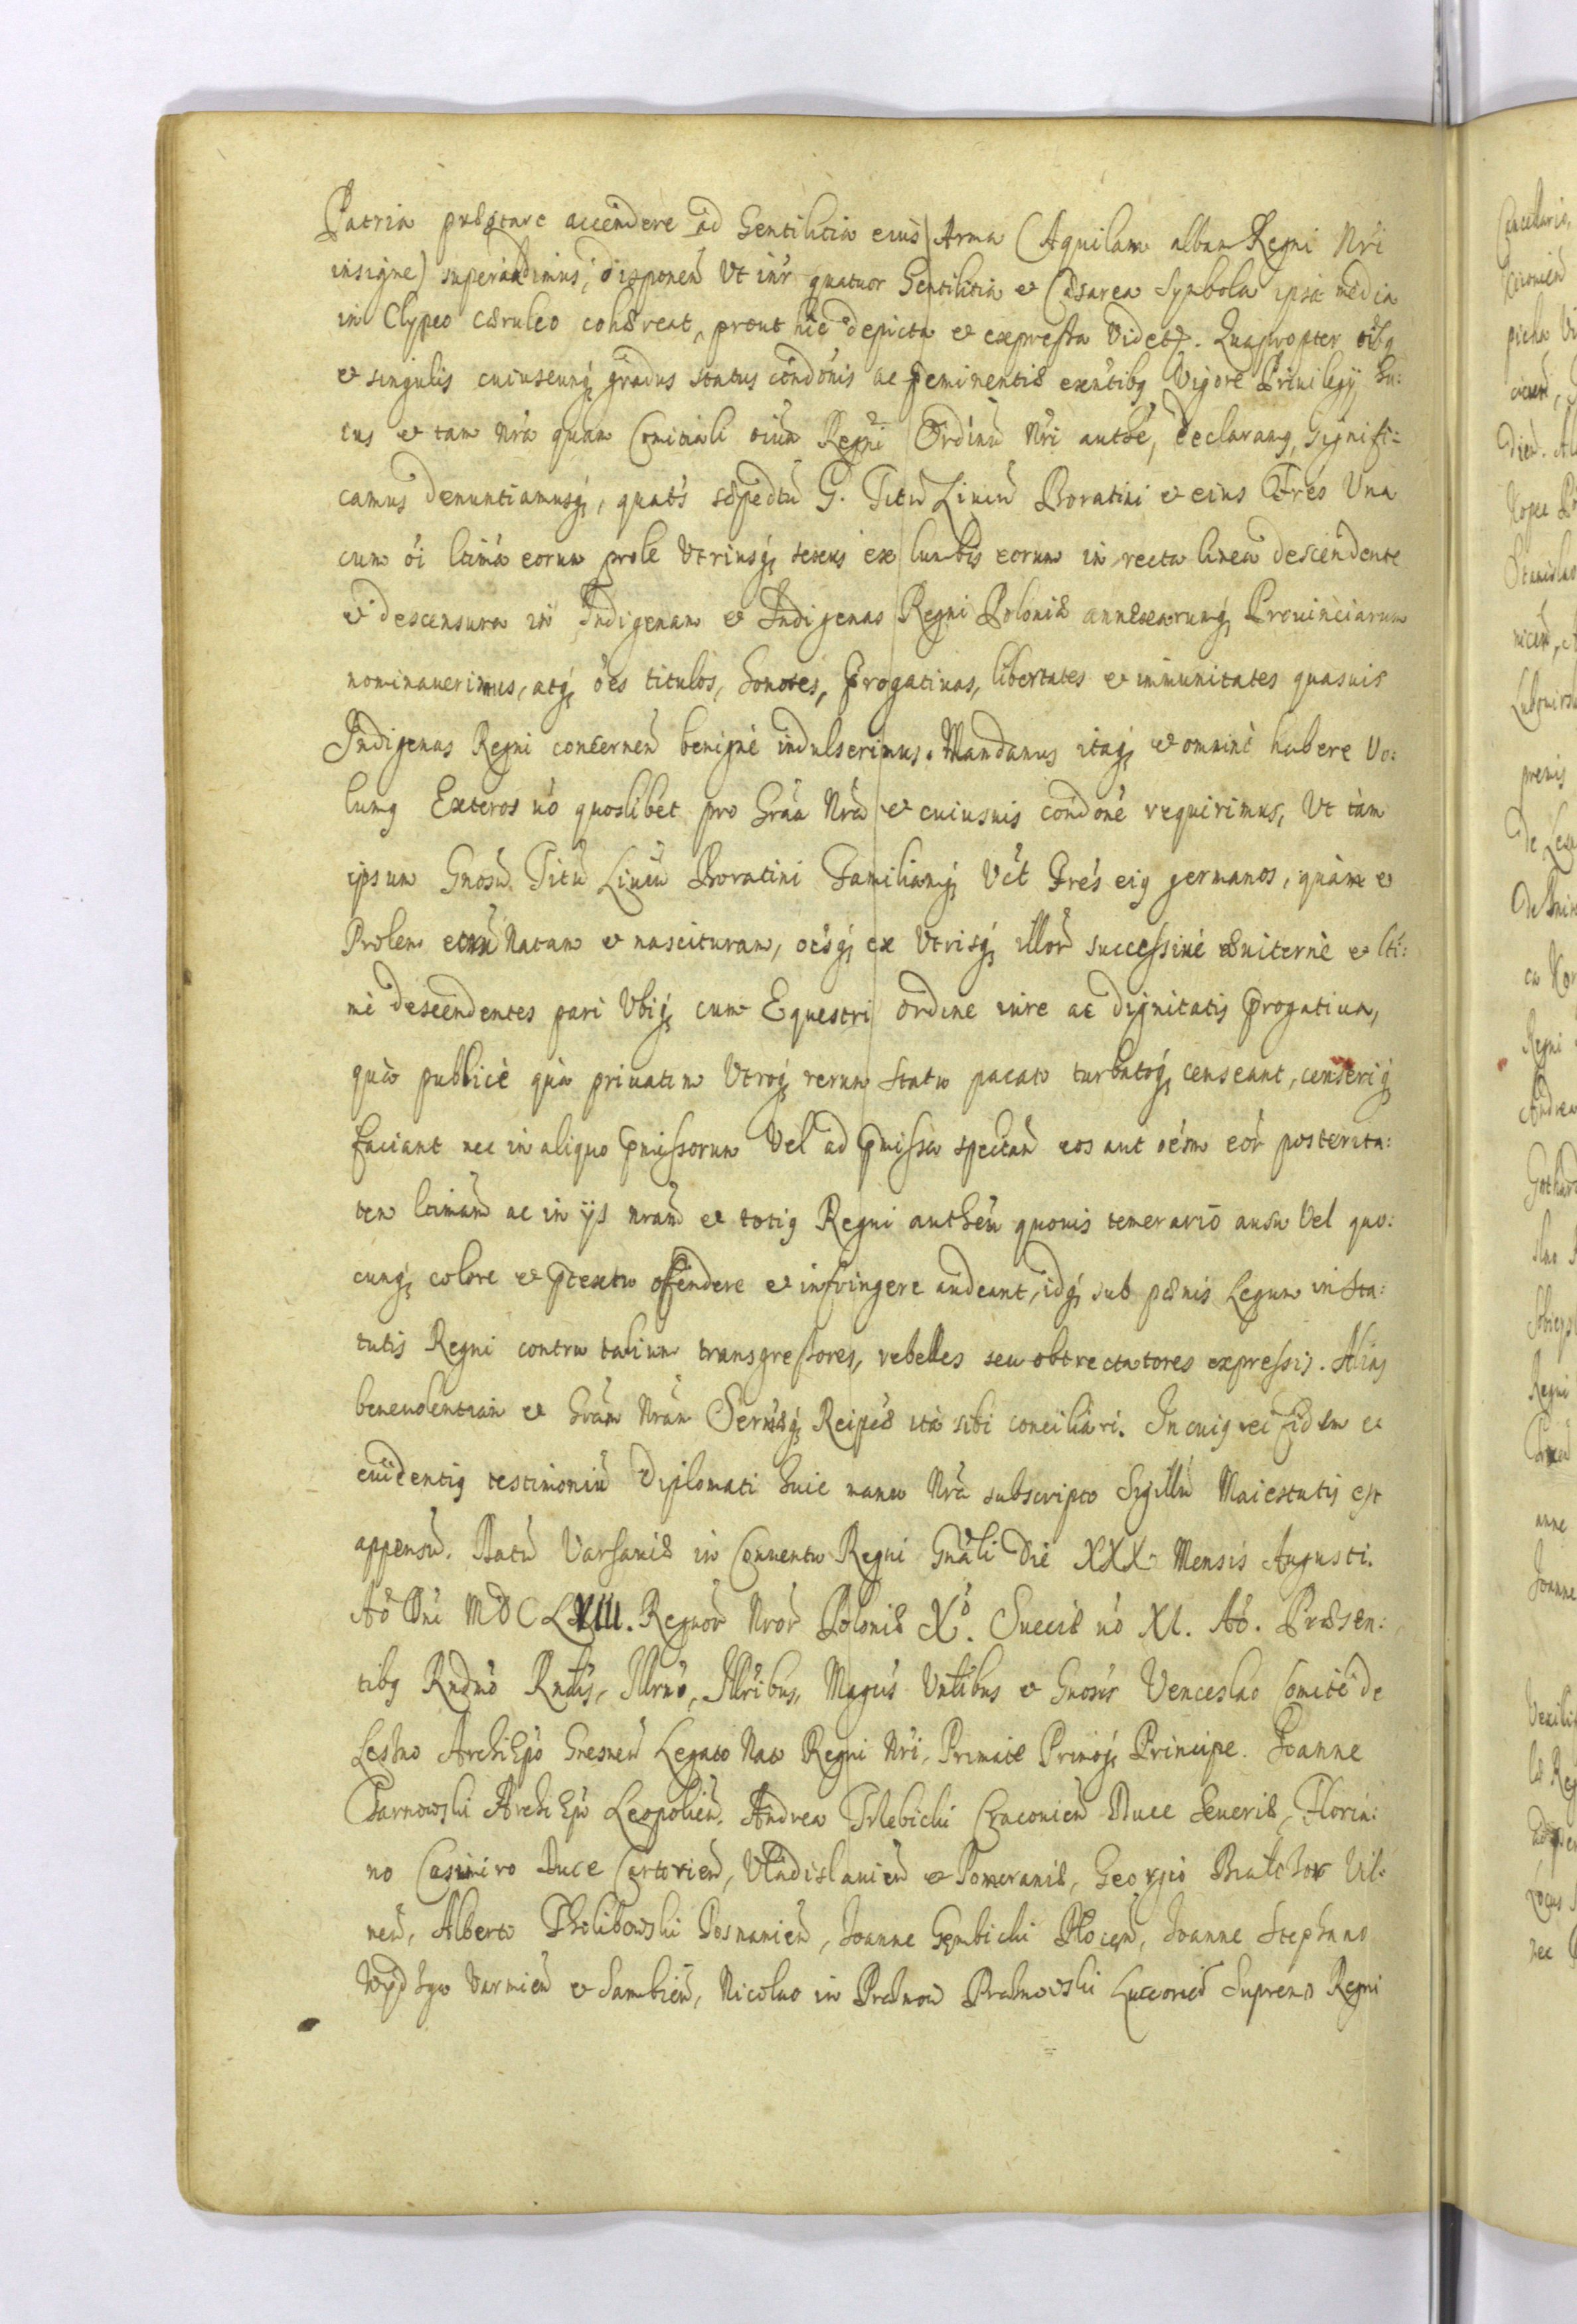 Patria præstare accendere ad Gentilitia eius Arma (Aquilam albam Regni Nri
insigne) superaddimus, disponen̄ Vt inr quatuor Gentilitia et Cæsarea Symbola ipsa media
in Clypeo cæruleo cohæreat, prout hic depicta et expressa Videtr. Quapropter oibq
et singulis cuiuscunq; gradus status condonis ac peminentiæ exntibq Vigore Priuilegÿ hu:
ius et tam Nra quam Comitiali oium Regni Ordinū Nri authe, declaramq, signifi:
camus denuntiamusq;, quats sæpedtū G. Titū Liuiū Boratini et eius Fres Vna
cum oi ltima eorum prole Vtriusq; sexus ex lumbis eorum in recta linea descendente
et descensura in Indigenam et Indigenas Regni Poloniæ annexarumq; Prouinciarum
nominauerimus, atq; oes titulos, honores, progatiuas, libertates et immunitates quasuis
Indigenas Regni concernen̄ benignè indulserimus. Mandamus itaq; et omninò habere Vo:
lumq Exteros uo quoslibet pro Grāa Nrā et cuiusuis condone requirimus, Vt tàm
ipsum Gnosū Titū Liuiū Boratini Familiamq; Vct Fres eiq germanos, quàm et
Prolem eorū Natam et nascituram, oesq; ex Vtrisq; illor successiuè æuiternè et lti:
mè descendentes pari Vbiq; cum Equestri ordine iure ac dignitatis progatiua,
quà publicè quà priuatim Vtroq; rerum statu pacato turbatoq; censeant, censeriq;
faciant nec in aliquo pmissorum Vel ad pmissa spectan̄ eos aut oem eor posterita:
tem ltimam ac in ÿs nram et totiq Regni authen quouis temerario ausu Vel quo:
cunq; colore et ptextu offendere et infringere audeant, idq; sub pænis Legum in Sta:
tutis Regni contra talium transgressores, rebelles seu obtrectatores expressis. Aliaq
beneuolentiam et Grām Nram Sermæq; Reipcæ ità sibi conciliàri. In cuiq rei fidem et
euidentiq testimoniū Diplomati huic manu Nrā subscripto Sigillū Maiestatis est
appensū. Datū Varsauiæ in Conuentu Regni Gnāli Die XXX Mensis Augusti.
Ao Dni MDCLVIII. Regnor Nror Poloniæ Xo. Sueciæ uo XI. Ao. Præsen:
tibq Rndmo Rndis, Illrmo, Illribus, Magcis Vntibus et Gnosis Venceslao Comite de
Leszno ArchiEpo Gnesnen̄ Legato Nato Regni Nri, Primate Primoq; Principe. Joanne
Tarnowski ArchiEpo Leopolien̄. Andrea Trlebicki Cracouien̄ Duce Seueriæ, Floria:
no Casimiro Duce Cartorien̄, Vladislauien̄ et Pomeraniæ, Georgio Biatłozor Vil:
nen̄, Alberto Tholibowski Posnanien̄, Joanne Gembicki Plocen̄, Joanne Stephano
Wydzga Varmien̄ et Sambien̄, Nicolao in Prażmow Prażmowski Luceorien̄ Supremo Regni